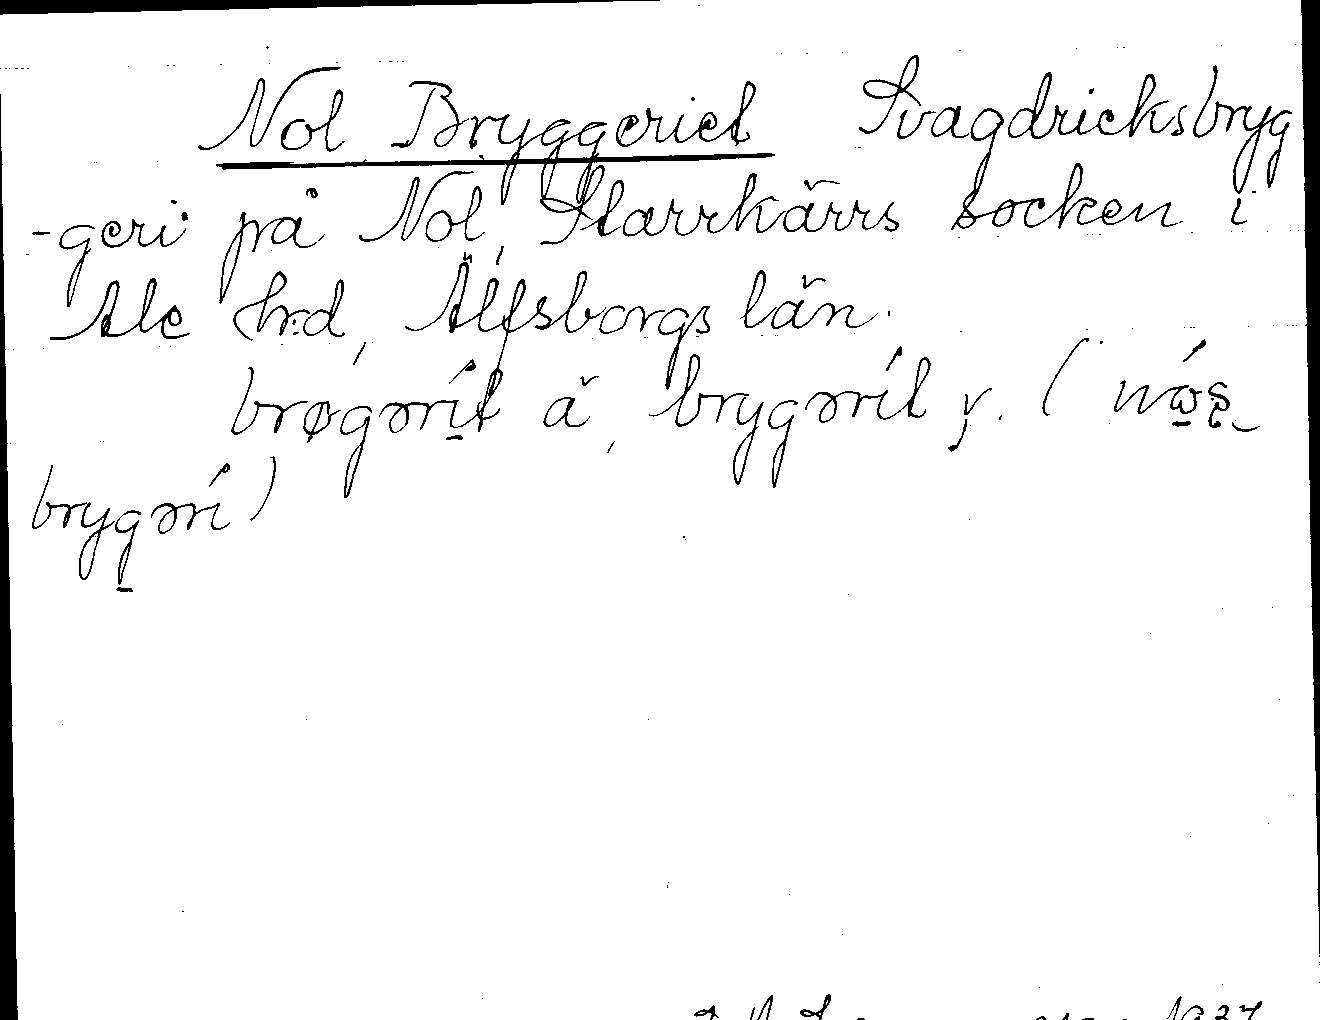 Nol Bryggeriet Svagdricksbryg
-geri på Nol, Starrkärrs socken i
Ale hrd, Älfsborgs län.
brøgərít ä, brygərít y. (
brygərí)
1937